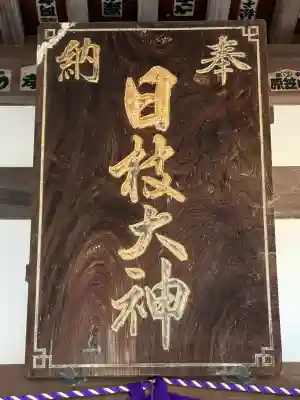 奉納
日枝大神